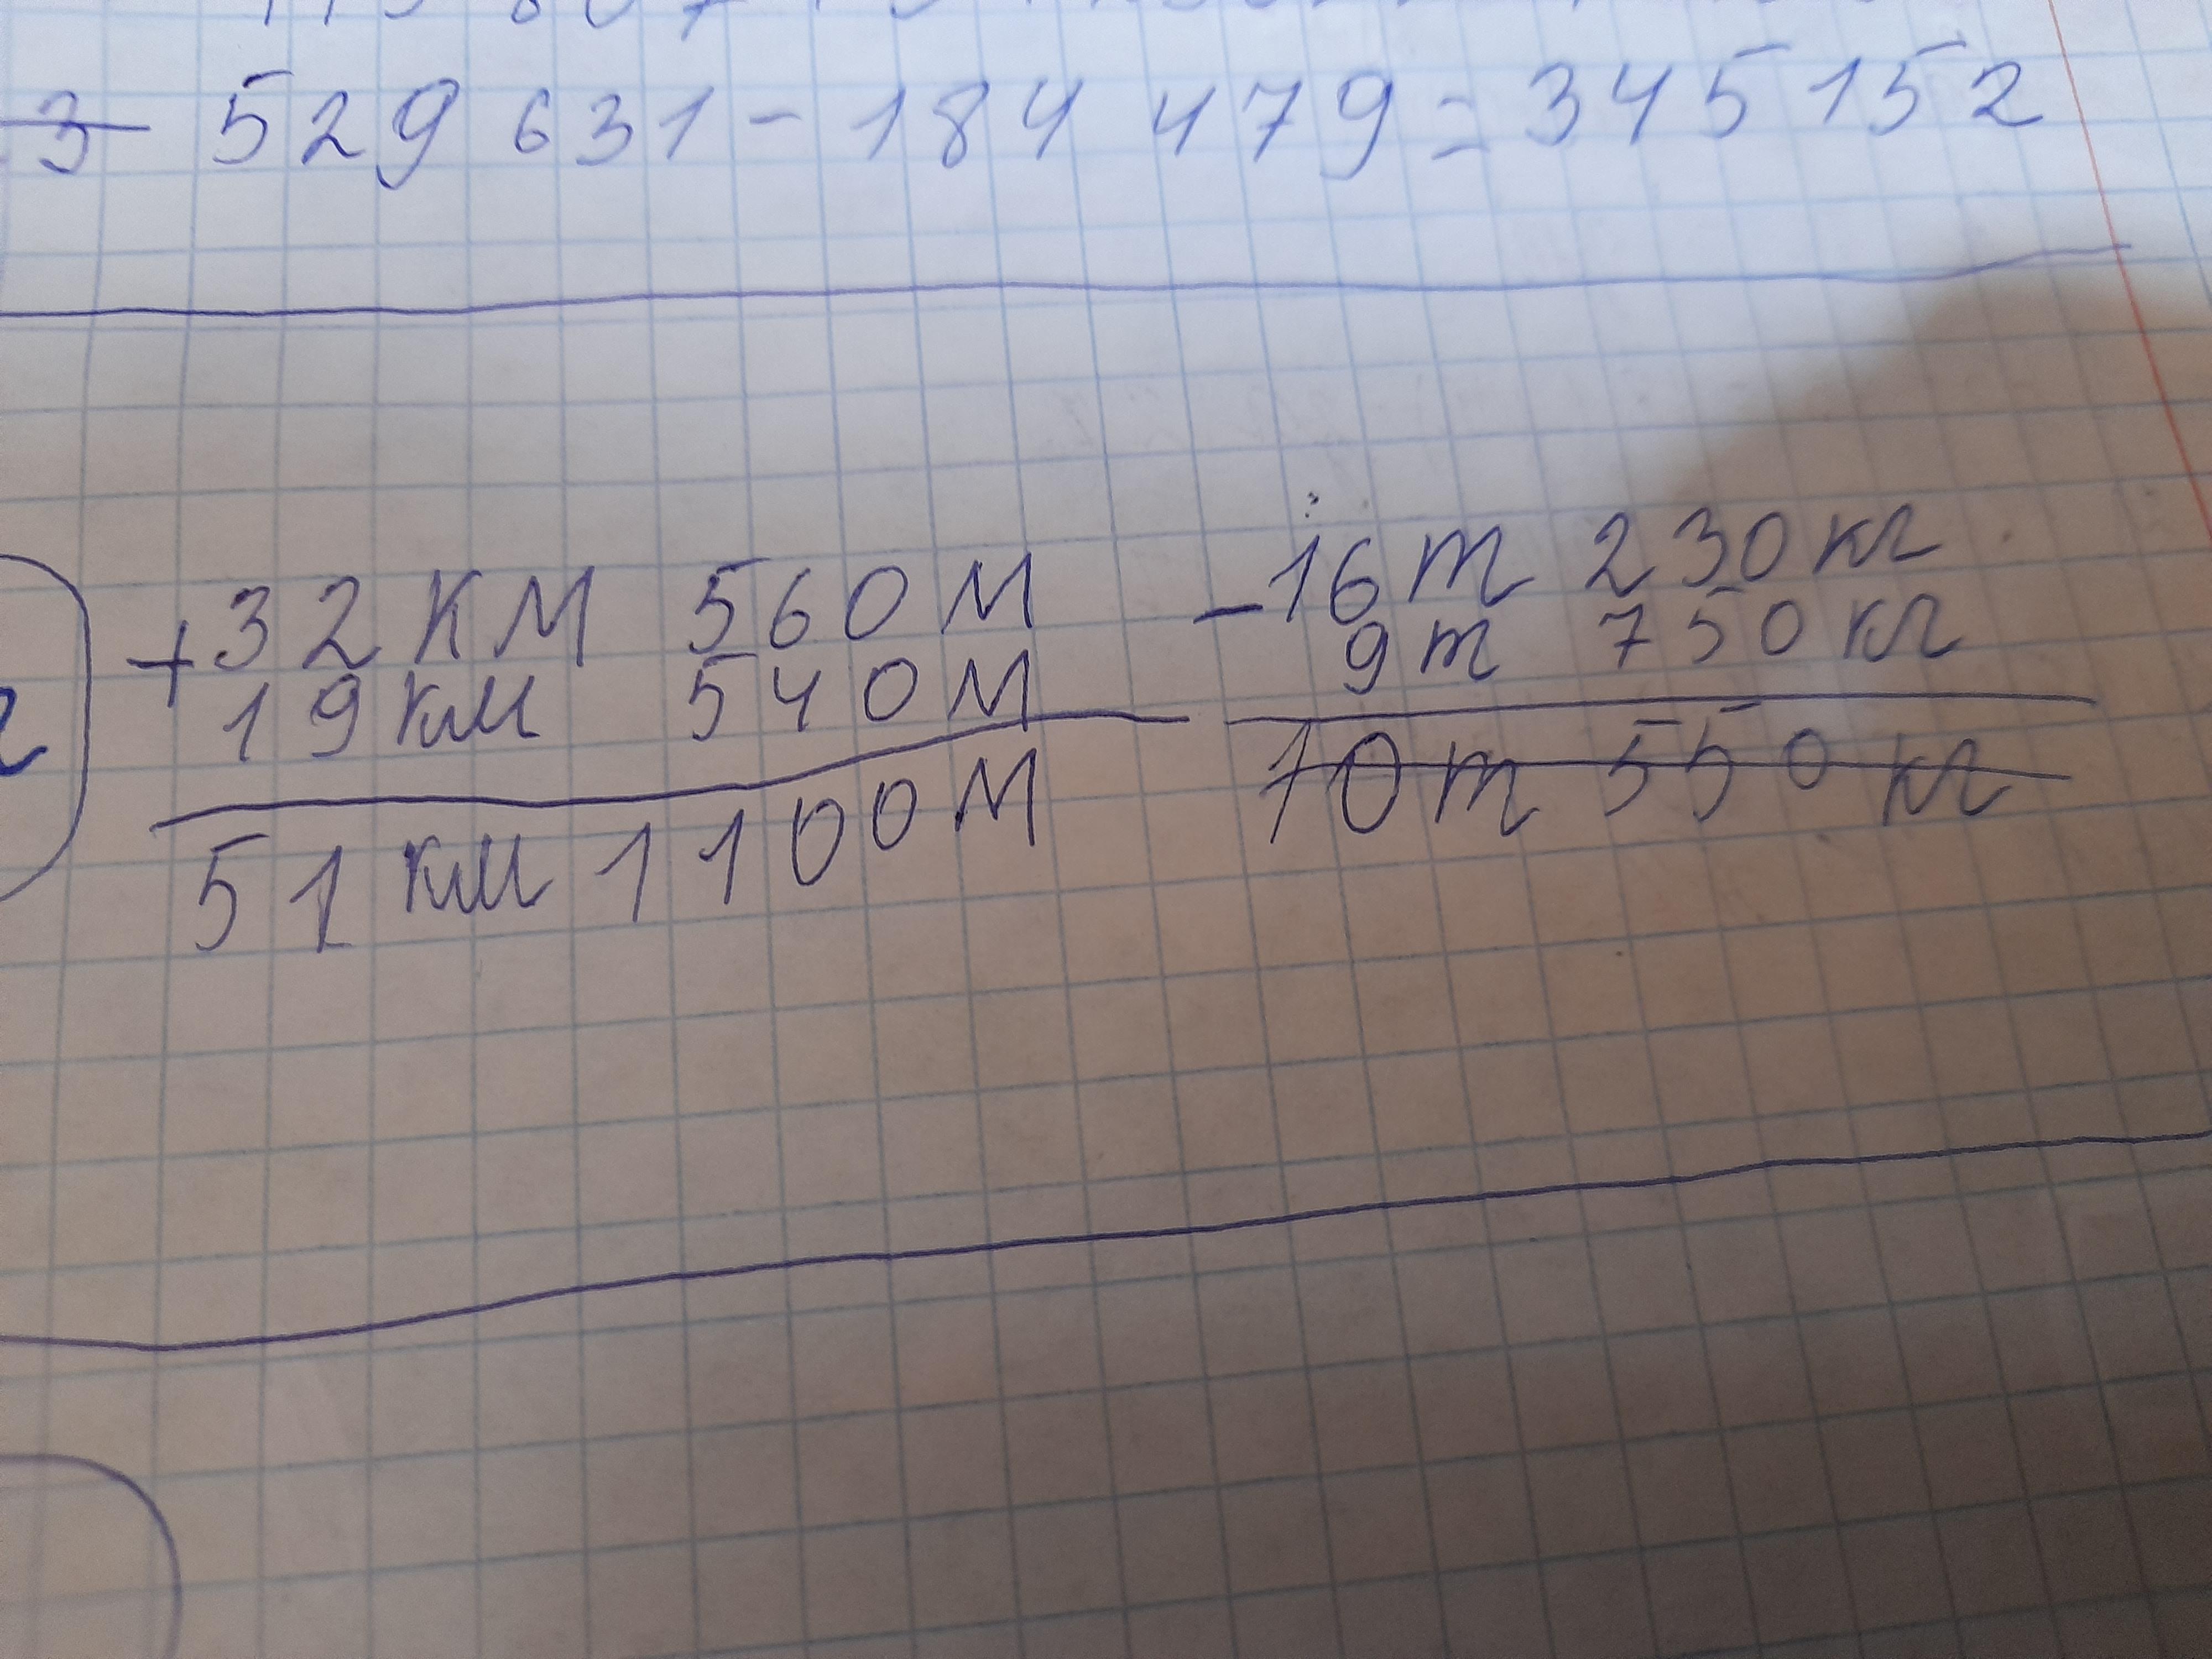 3 529 631 - 184 479 = 345 152
+32 КМ 560 М
19 км 540 М
51 км 1100 М
-16 т 230 кг
9 т 750 кг
10 т 550 кг